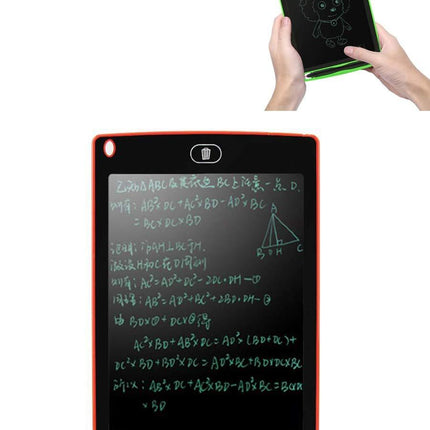 已知△ABC及其底边BC上任意一点D.
则有: AB²×DC+AC²×BD-AD²×BC
=BC×DC×BD
A
B D H C
证明: 作AH⊥BC于H.
则有: AC²=AD²+DC²-2DC·DH-①
AB²=AD²+BD²+2BD·DH-②
由BD×①+DC×②得
AC²×BD+AB²×DC=AD²×(BD+DC)+
DC²×BD+BD²×DC=AD²×BC+BD×DC×BC
所以: AB²×DC+AC²×BD-AD²×BC=BC×DC
×BD